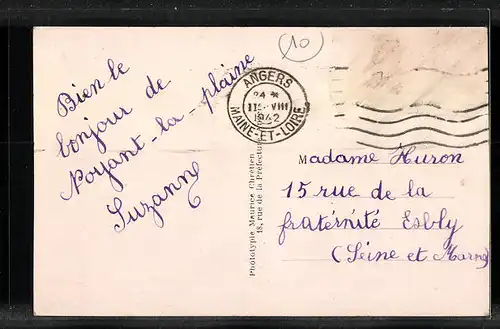 Bien le
bonjour de
Noyant-la-plaine
Suzanne
10
ANGERS
24 *
11 - VIII
1942
MAINE-ET-LOIRE
Phototypie Maurice Chrétien
18, rue de la Préfecture
Madame Huron
15 rue de la
fratérnité Esbly
(Seine et Marne)